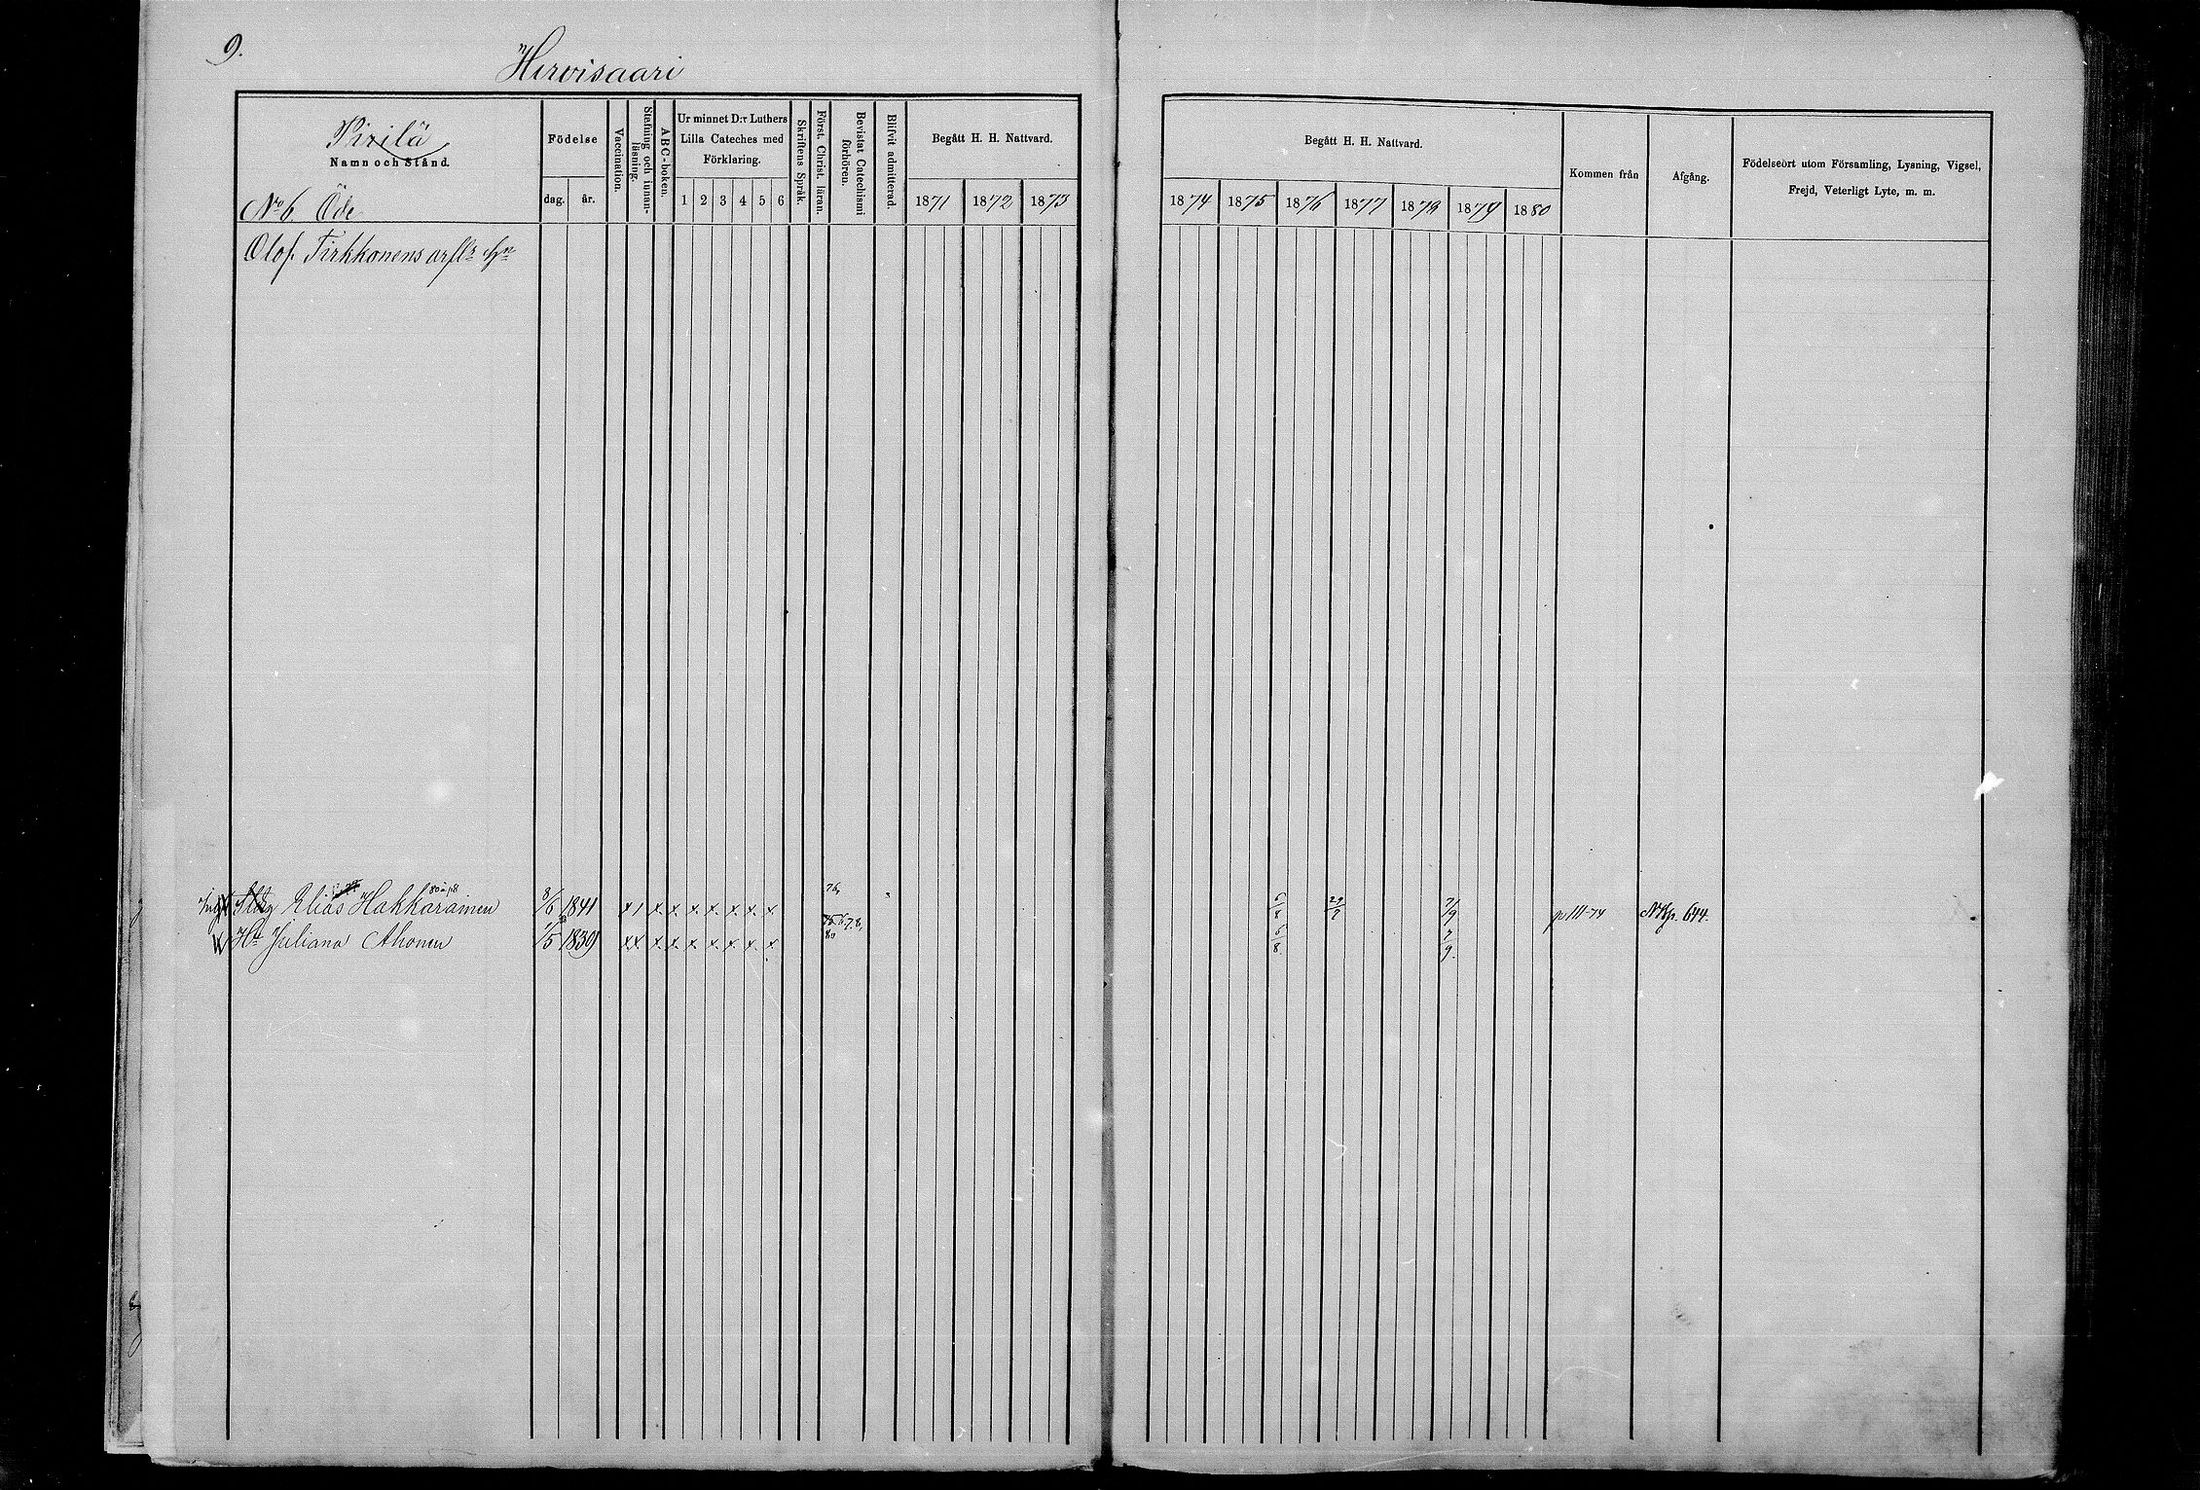 9.
Hirvisaari
Pirilä
Namn och Stånd.
No 6 Öde
Födelse
dag.
år.
Vaccination.
Stafning och innanläsning.
ABC-boken.
Ur minnet D:r Luthers
Lilla Cateches med
Förklaring.
1 2 3 4 5 6
Skriftens Språk.
Först. Christ. läran.
Bevistat Catechismi
förhören.
Blifvit admitterad.
Begått H. H. Nattvard.
1871 1872 1873
Begått H. H. Nattvard.
1874 1875 1876 1877 1878 1879 1880
Kommen från
Afgång.
Födelseort utom Församling, Lysning, Vigsel,
Frejd, Veterligt Lyte, m. m.
Olof Tirkkonens
Elias Hakkarainen 8/6 1841 x x x x x x x 76, 29/7 7/9 p 111-74 NKp. 644.
Hr Juliana Ahonen 1/5 1839 x x x x x x x x x 80 6/8 7/9